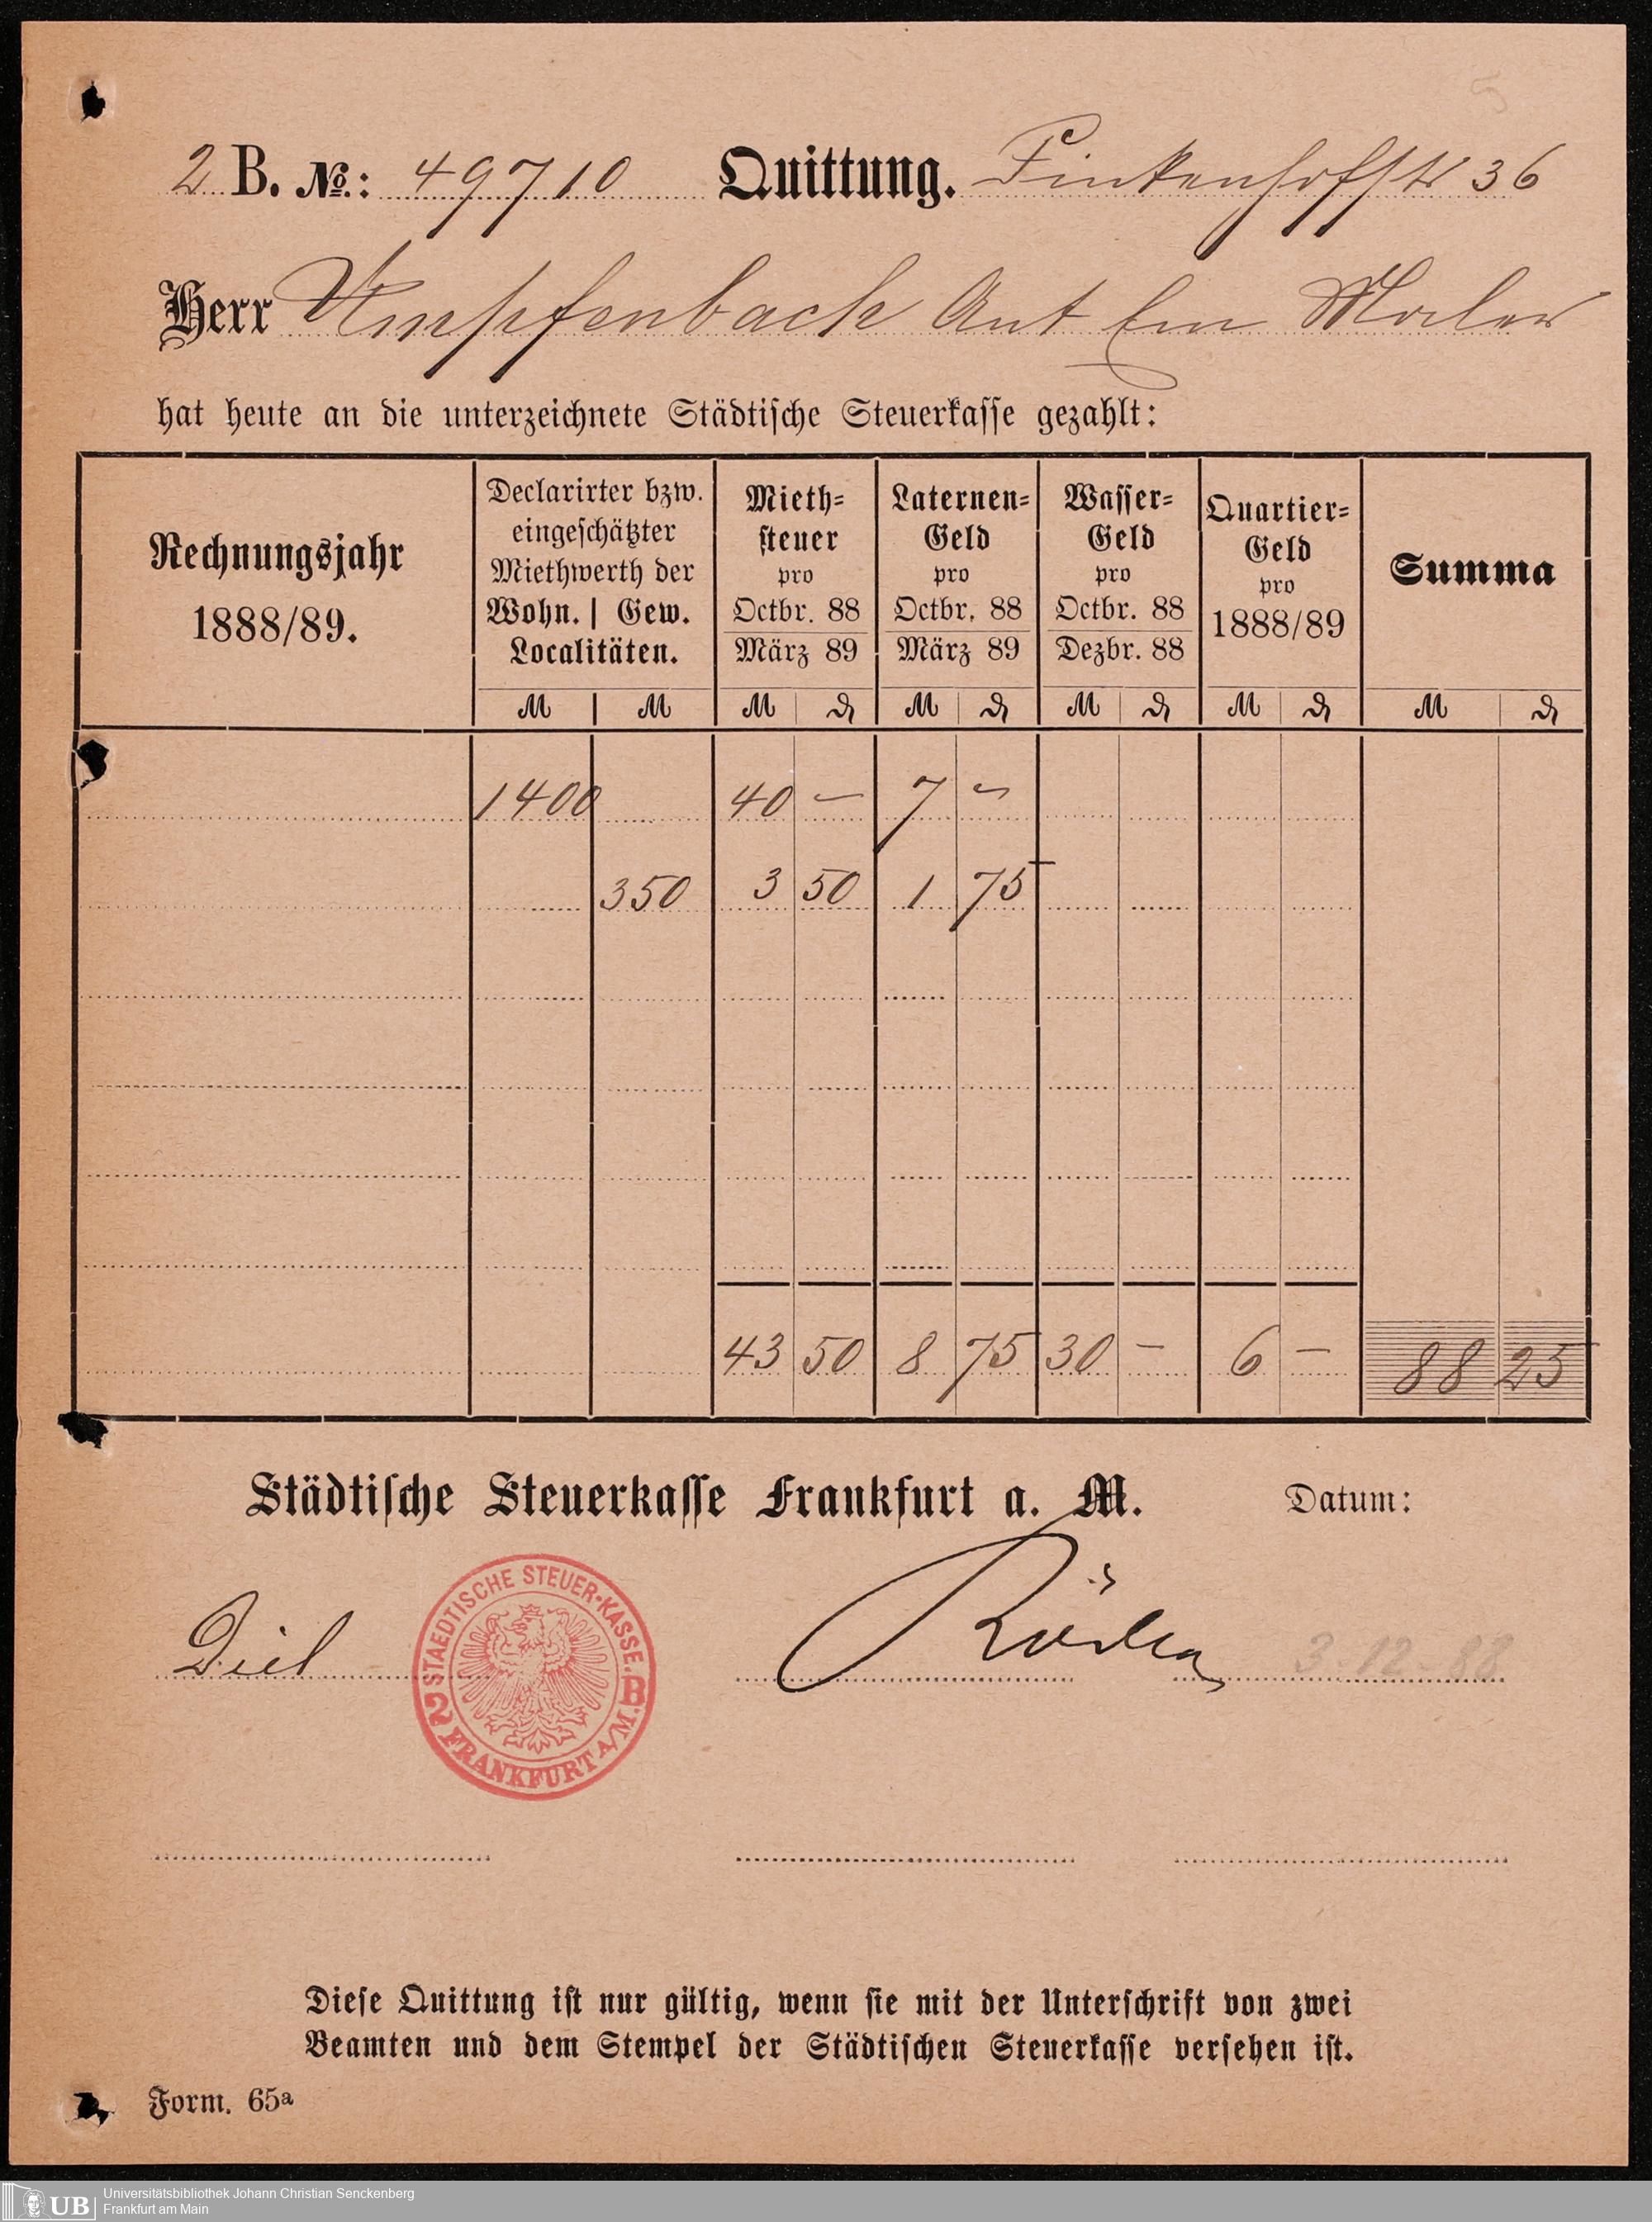 2 B. №.: 49710 Quittung. Finkenhofstr 36
Herr Umpfenbach Ant Em Maler
hat heute an die unterzeichnete Städtische Steuerkasse gezahlt:
Rechnungsjahr
1888/89.
Declarirter bzw.
eingeschätzter
Miethwerth der
Wohn. | Gew.
Localitäten.
Mieth-
steuer
pro
Octbr. 88
März 89
Laternen-
Geld
pro
Octbr. 88
März 89
Wasser-
Geld
pro
Octbr. 88
Dezbr. 88
Quartier-
Geld
pro
1888/89
Summa
M M M ₰ M ₰ M ₰ M ₰ M ₰
1400 40 — 7 —
350 3 50 1 75
43 50 8 75 30 — 6 — 88 25
Städtische Steuerkasse Frankfurt a. M. Datum:
Diel
STAEDTISCHE STEUER-KASSE.
2 FRANKFURT A/M. B
3-12-88
Diese Quittung ist nur gültig, wenn sie mit der Unterschrift von zwei
Beamten und dem Stempel der Städtischen Steuerkasse versehen ist.
Form. 65a
UB
Universitätsbibliothek Johann Christian Senckenberg
Frankfurt am Main